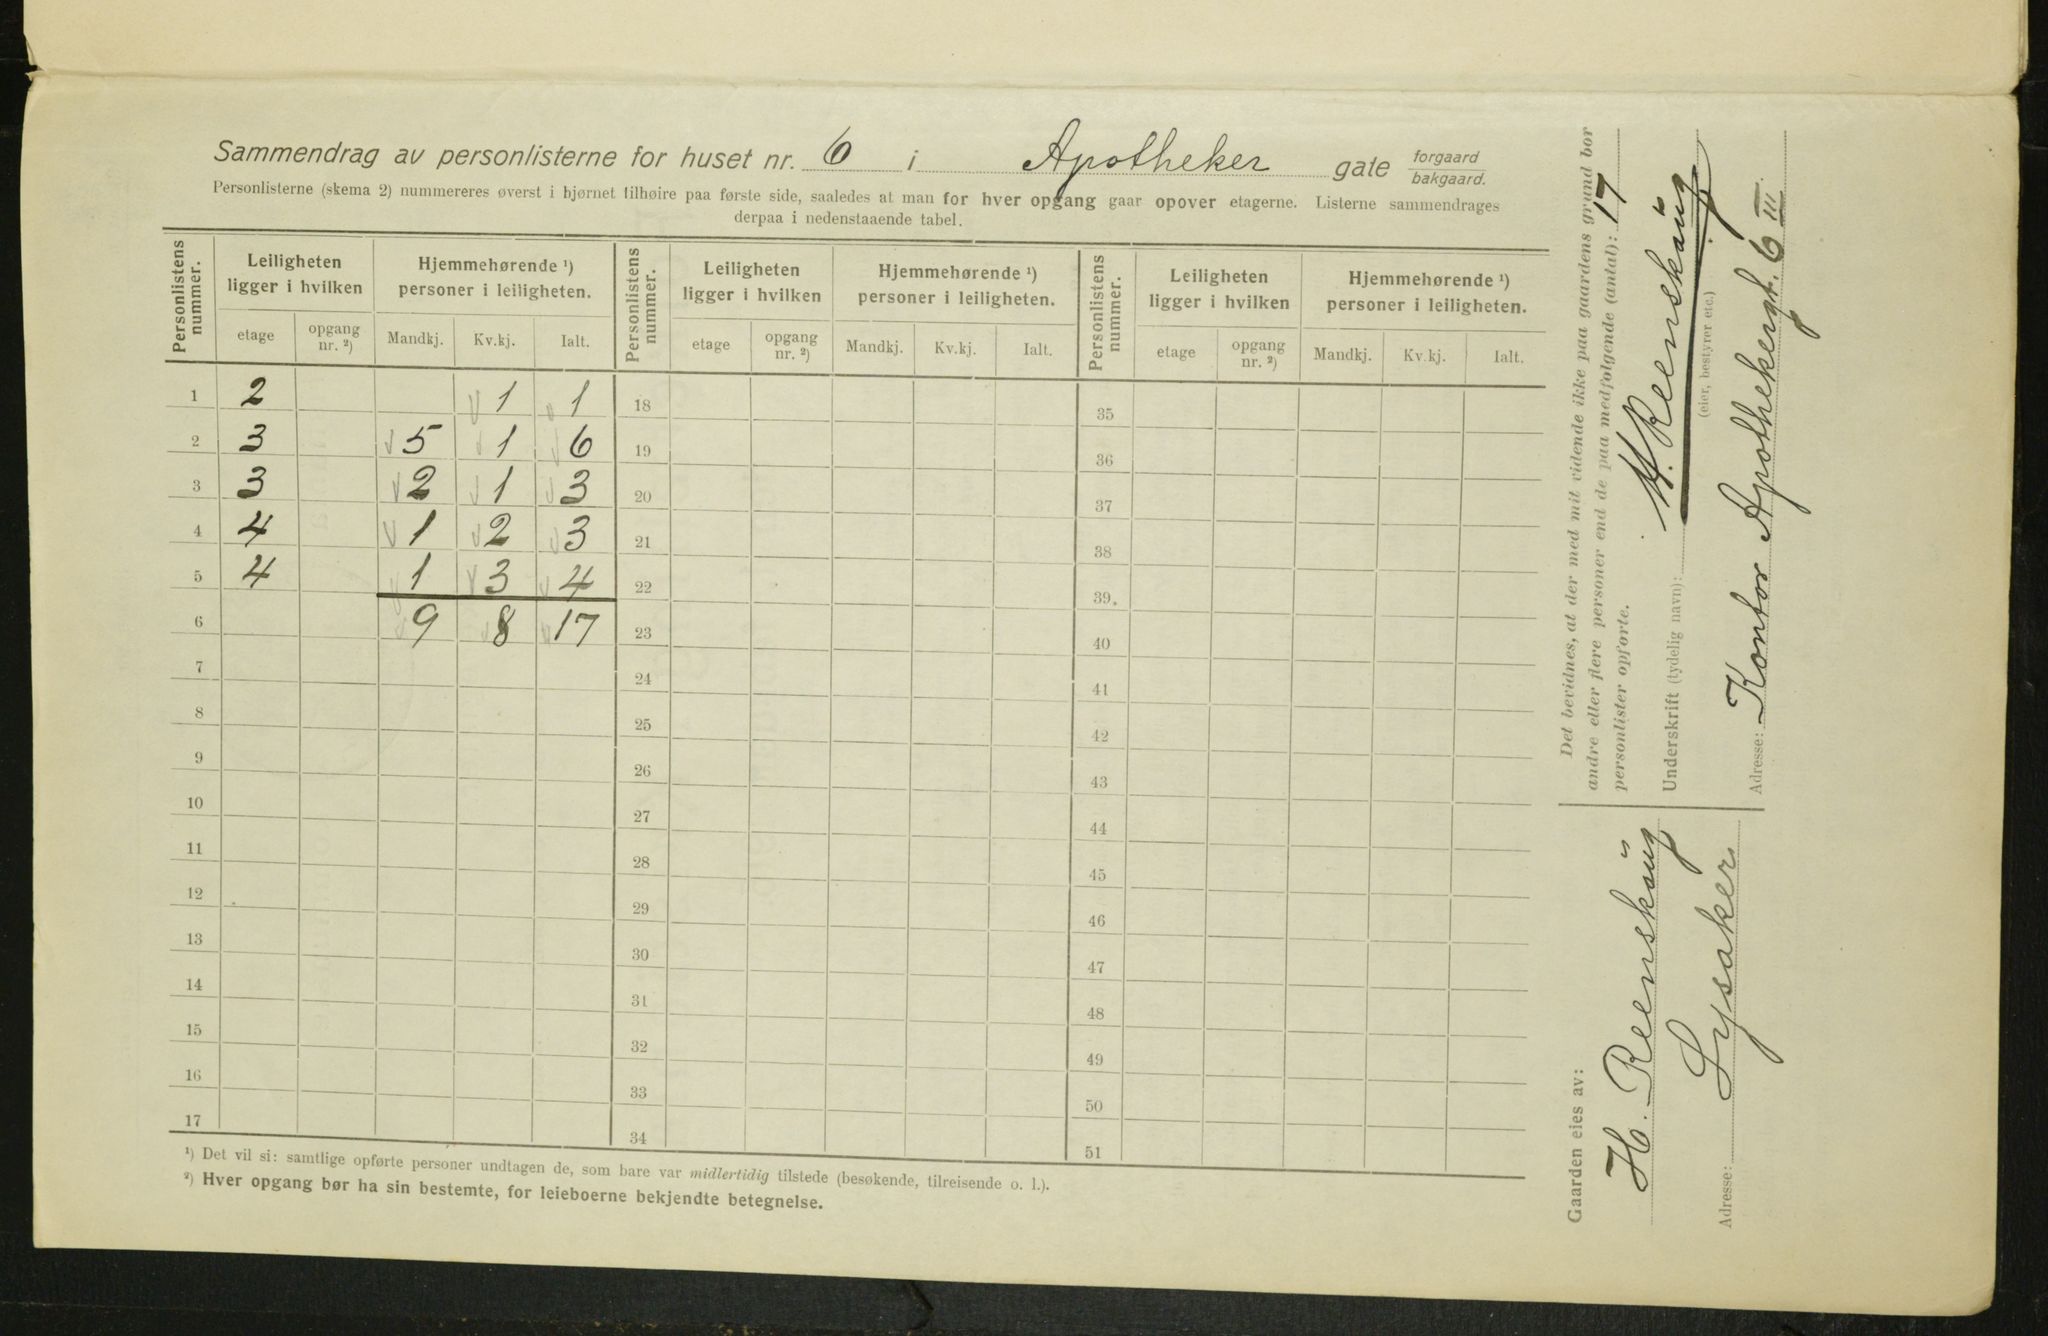 Sammendrag av personlisterne for huset nr. 6 i Apotheker gate forgaard bakgaard.
Personlisterne (skema 2) nummereres øverst i hjørnet tilhøire paa første side, saaledes at man for hver opgang gaar opover etagerne. Listerne sammendrages
derpaa i nedenstaaende tabel.
Personlistens nummer. Leiligheten ligger i hvilken Hjemmehørende ¹) personer i leiligheten. Personlistens nummer. Leiligheten ligger i hvilken Hjemmehørende ¹) personer i leiligheten. Personlistens nummer. Leiligheten ligger i hvilken Hjemmehørende ¹) personer i leiligheten.
etage opgang nr. ²) Mandkj. Kv.kj. Ialt. etage opgang nr. ²) Mandkj. Kv.kj. Ialt. etage opgang nr. ²) Mandkj. Kv.kj. Ialt.
1 2 1 1 18 35
2 3 5 1 6 19 36
3 3 2 1 3 20 37
4 4 1 2 3 21 38
5 4 1 3 4 22 39.
6 9 8 17 23 40
7 24 41
8 25 42
9 26 43
10 27 44
11 28 45
12 29 46
13 30 47
14 31 48
15 32 49
16 33 50
17 34 51
¹) Det vil si: samtlige opførte personer undtagen de, som bare var midlertidig tilstede (besøkende, tilreisende o. l.).
²) Hver opgang bør ha sin bestemte, for leieboerne bekjendte betegnelse.
Det bevidnes, at der med mit vidende ikke paa gaardens grund bor
andre eller flere personer end de paa medfølgende (antal): 17
personlister opførte.
Underskrift (tydelig navn): H. Reenskaug
(eier, bestyrer etc.)
Adresse: Kontor Apothekergt. 6 III
Gaarden eies av:
H. Reenskaug
Adresse: Lysaker